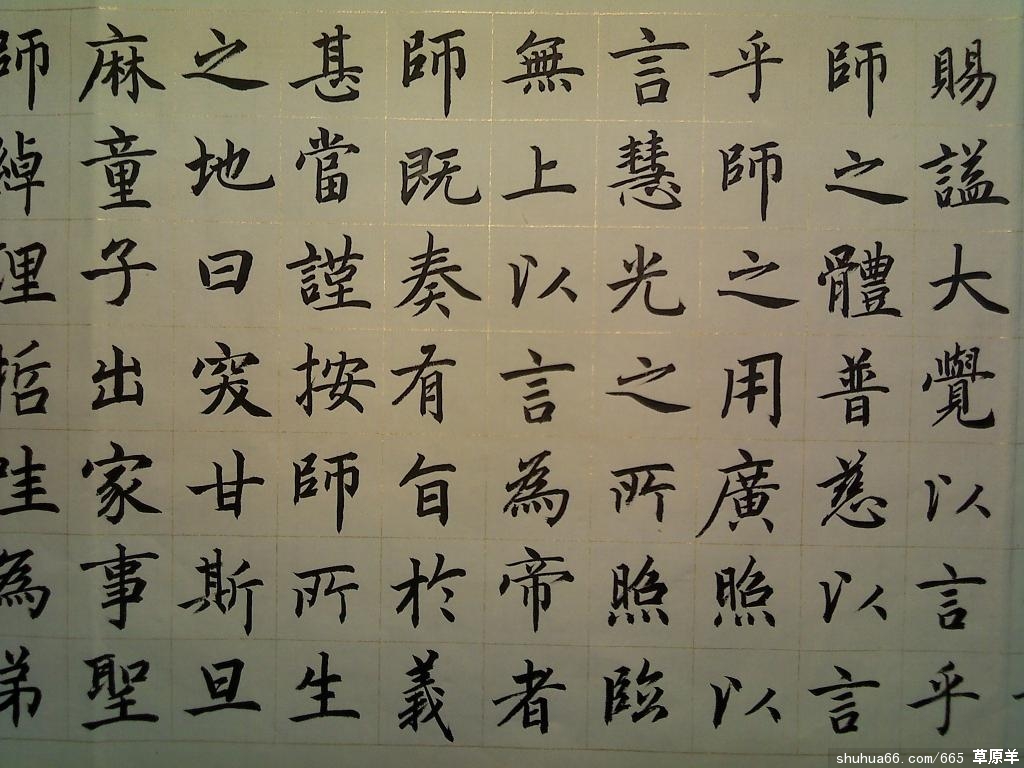 賜謚大覺以言乎
師之體普慈以言
乎師之用廣照以
言慧光之所照臨
無上以言為帝者
師既奏有旨於義
甚當謹按師所生
之地曰突甘斯旦
麻童子出家事聖
師綽理哲哇為弟
shuhua66.com/665 草原羊